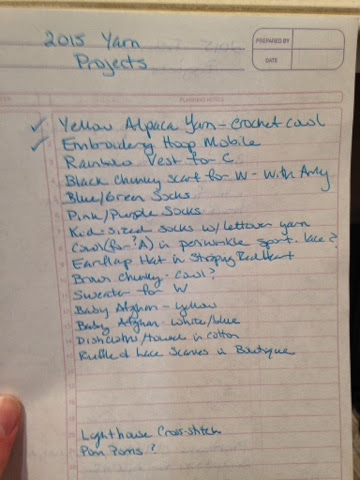 2015 Yarn
Projects
PREPARED BY
DATE
PLANNING NOTES
✓ Yellow Alpaca Yarn - Crochet Cowl
✓ Embroidery Hoop Mobile
Rainbow Vest for C
Black Chunky scarf for W - With Amy
Blue/Green Socks
Pink/Purple Socks
Kid-Sized Socks w/ leftover yarn
Cowl (for ?A) in periwinkle sport. lace?
Earflap Hat in Stripey Red Heart
Brown Chunky - Cowl?
Sweater for W
Baby Afghan - yellow
Baby Afghan - White/blue
Dishcloths/towels in cotton
Ruffled Lace Scarves in Boutique
Lighthouse Cross-stitch
Pom Poms?